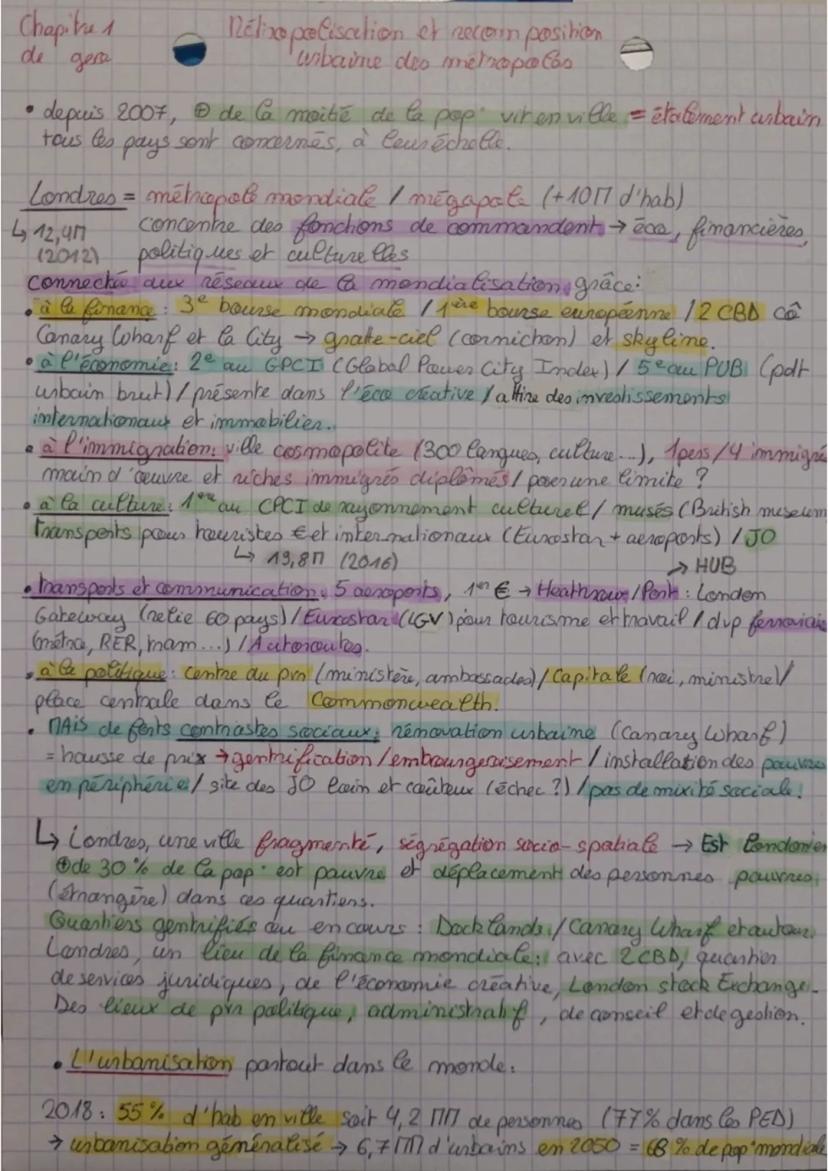 Chapitre 1
de géo
Métropolisation et recomposition
urbaine des métropoles
• depuis 2007, ⊕ de la moitié de la pop° vit en ville = étalement urbain
tous les pays sont concernés, à leur échelle.
Londres = métropole mondiale / mégapole (+10M d'hab)
↳ 12,4M concentre des fonctions de commandent → éco, financières,
(2012) politiques et culturelles
connecté aux réseaux de la mondialisation grâce:
• à la finance : 3e bourse mondiale / 1ère bourse européenne / 2 CBD
Canary Wharf et la City → gratte-ciel (cornichon) et skyline.
• à l'économie: 2e au GPCI (Global Power City Index) / 5e au PUB (pdt
urbain brut) / présente dans l'éco créative / attire des investissements
internationaux et immobilier.
• à l'immigration: ville cosmopolite (300 langues, culture...), 1pers/4 immigré
main d'œuvre et riches immigrés diplômés / poser une limite ?
• à la culture: 1ere au CPCI de rayonnement culturel / musés (British museum
Transports pour touristes € et internationaux (Eurostar + aeroports) / JO
↳ 19,8M (2016) → HUB
• transports et communication: 5 aeroports, 1er € → Heathrow / Port : London
Gateway (relie 60 pays) / Eurostar (LGV) pour tourisme et travail / dvp ferroviaire
(métro, RER, tram...) / Autoroutes.
• à la politique : centre du pvr (ministère, ambassades) / Capitale (roi, ministre) /
place centrale dans le Commonwealth.
• MAIS de forts contrastes sociaux: rénovation urbaine (Canary Wharf)
= hausse de prix → gentrification / embourgeoisement / installation des pauvres
en périphérie / site des JO loin et coûteux (échec ?) / pas de mixité sociale!
↳ Londres, une ville fragmenté, ségrégation socio-spatiale → Est Londonien
⊕ de 30% de la pop° est pauvre et déplacement des personnes pauvres
(étrangère) dans ces quartiers.
Quartiers gentrifiés ou en cours : Docklands / Canary Wharf et autour.
Londres, un lieu de la finance mondiale: avec 2CBD, quartier
de services juridiques, de l'économie créative, London stock Exchange.
Des lieux de pvr politique, administratif, de conseil et de gestion.
• L'urbanisation partout dans le monde:
2018 : 55% d'hab en ville soit 4,2 MM de personnes (77% dans les PED)
→ urbanisation généralisé → 6,7 MM d'urbains en 2050 = 68% de pop° mondiale